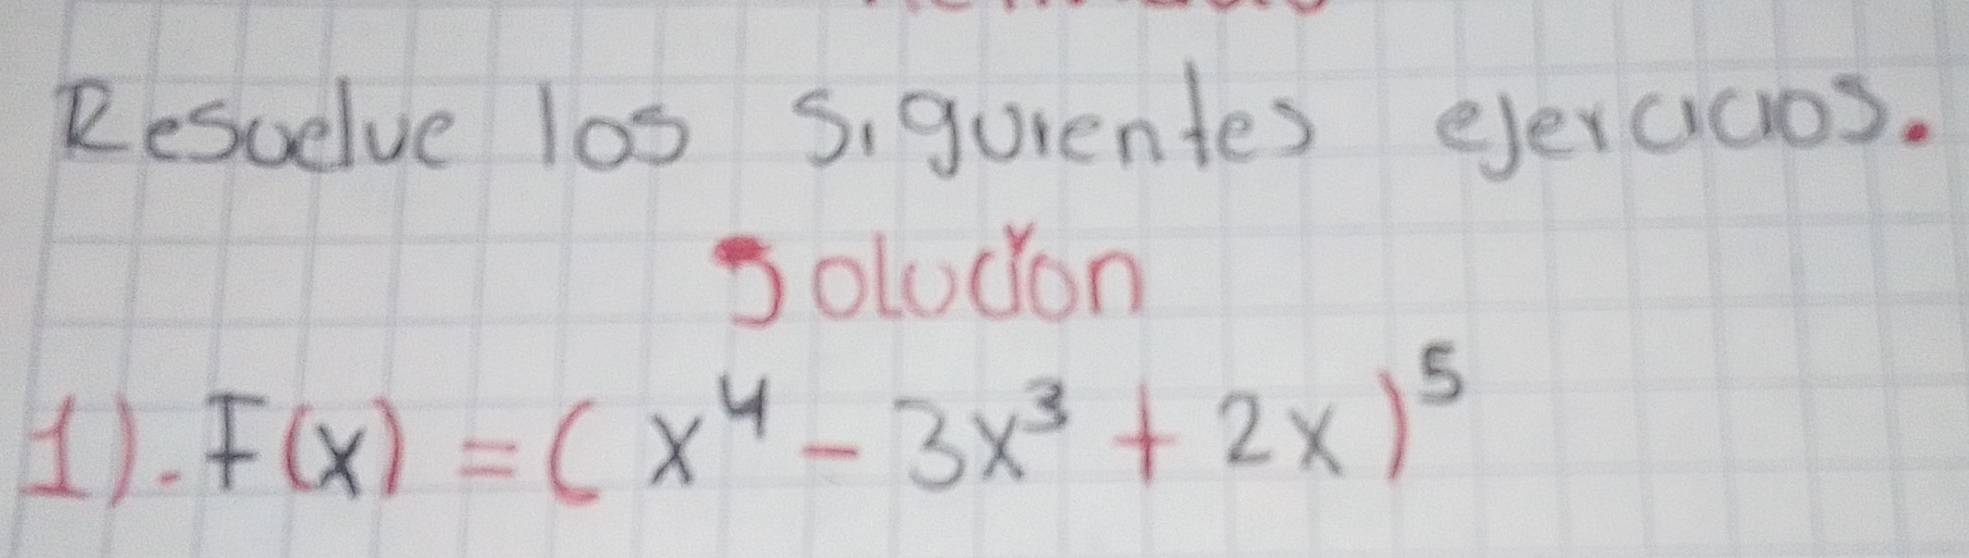 Resuelve los siguientes ejercicios.
Solución
1). F(x) = (x⁴ - 3x³ + 2x)⁵